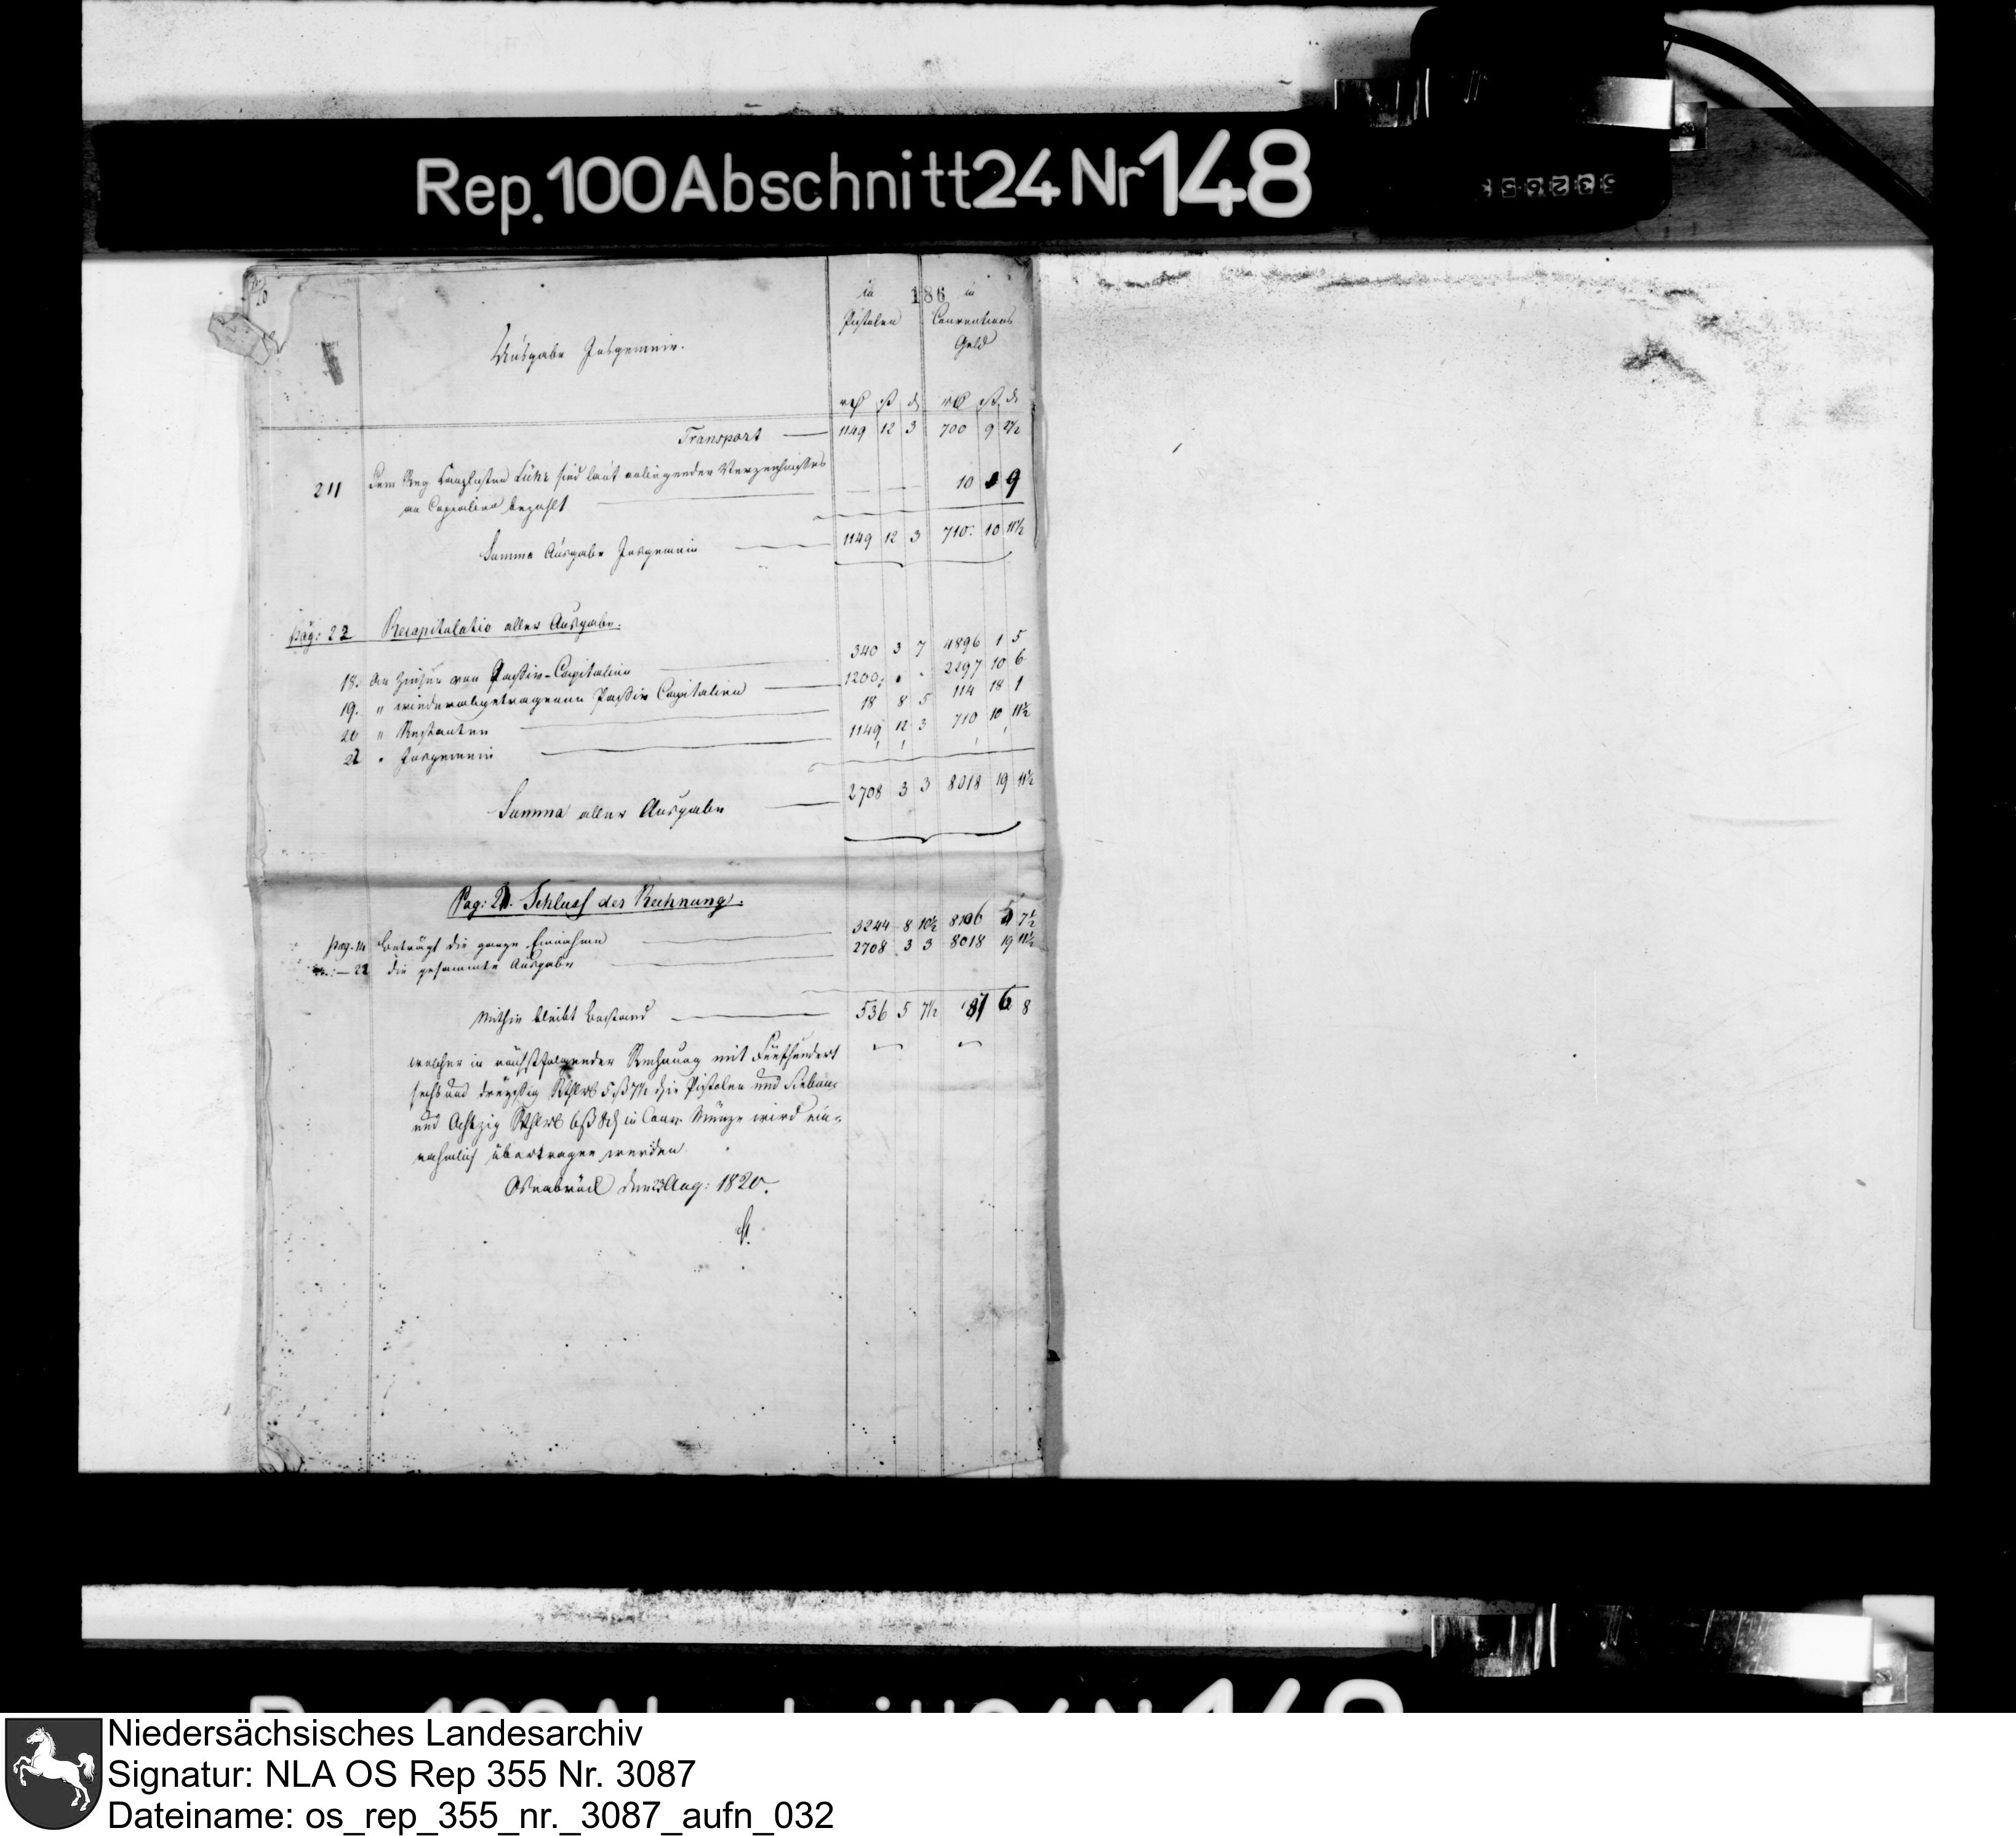 Rep. 100 Abschnitt 24 Nr 148
186
in in
Pistolen Conventions
Geld
Ausgabe Insgemein.
rt ß d rt ß d
Transport — 1149 12 3 700 9 2½
211 Dem Reg Canzlisten Lühr sind laut anliegenden Verzeichnisses
an Copialien bezahlt — — — 10 1 9
Summa Ausgabe Insgemein — 1149 12 3 710 10 11½
pag: 22 Recapitulatio aller Ausgabe.
18. An Zinsen von Passiv-Capitalien — 340 3 7 4896 1 5
19. " wiederabgetragenen Passiv Capitalien — 1200 . . 2297 10 6
20 " Restanten — 18 8 5 114 18 1
22 " Insgemein — 1149 12 3 710 10 11½
Summa aller Ausgabe — 2708 3 3 8018 19 11½
Pag: 21. Schluss der Rechnung.
pag. 14 Beträgt die ganze Einnahme — 3244 8 10½ 8106 5 7½
— 22 die gesammte Ausgabe — 2708 3 3 8018 19 11½
Mithin bleibt Bestand — 536 5 7½ 87 6 8
welcher in nächstfolgender Rechnung mit Fünfhundert
sechs und dreyßig Rthlr 5 ß 7½ d in Pistolen und Sieben
und Achtzig Rthlr 6 ß 8 d in Conv. Münze wird ein-
nahmlich übertragen werden.
Osnabrück den 23 Aug: 1820.
Niedersächsisches Landesarchiv
Signatur: NLA OS Rep 355 Nr. 3087
Dateiname: os_rep_355_nr._3087_aufn_032